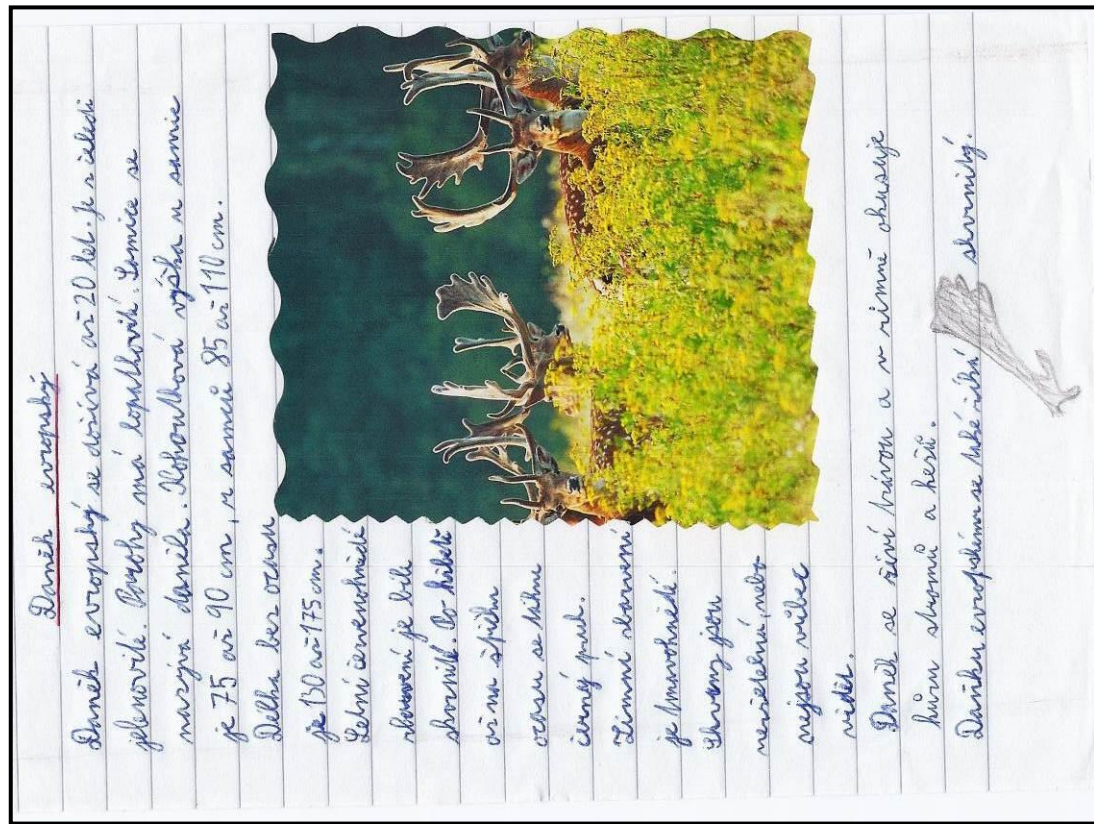 Daněk evropský
Daněk evropský se dožívá až 20 let. Je z čeledi
jelenovité. Parohy má lopatkovité. Samice se
nazývá daněla. Kohoutková výška u samic
je 75 až 90 cm, u samců 85 až 110 cm.
Délka bez ocasu
je 130 až 175 cm.
Letní červenohnědé
zbarvení je bíle
skvrnité. Po hřbetě
až na špičku
ocasu se táhne
černý pruh.
Zimní zbarvení
je tmavohnědé.
Skvrny jsou
nezřetelné, nebo
nejsou vůbec
vidět.
Daněk se živí trávou a v zimně ohusuje
kůru stromů a keřů.
Daňku evropskému se také říká skvrnitý.